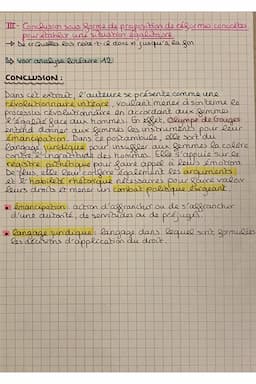 III - Conclusion sous forme de proposition de réformes concrètes
pour établir une situation égalitaire
→ De "
Voir analyse linéaire 12
CONCLUSION :
Dans cet extrait, l'auteure se présente comme une
révolutionnaire intègre, voulant mener à son terme le
processus révolutionnaire en accordant aux femmes
l'égalité face aux hommes. En effet, Olympe de Gouges
entend donner aux femmes les instruments pour leur
émancipation. Dans ce postambule, elle sort du
langage juridique pour insuffler aux femmes la colère
contre l'ingratitude des hommes. Elle s'appuie sur le
registre pathétique pour faire appel à leurs émotions.
De plus, elle leur confère également les arguments
et l'habileté rhétorique nécessaires pour faire valoir
leurs droits et mener un combat politique urgent.
Émancipation : action d'affranchir ou de s'affranchir
d'une autorité, de servitudes ou de préjugés.
Langage juridique : langage dans lequel sont formulées
les décisions d'application du droit.